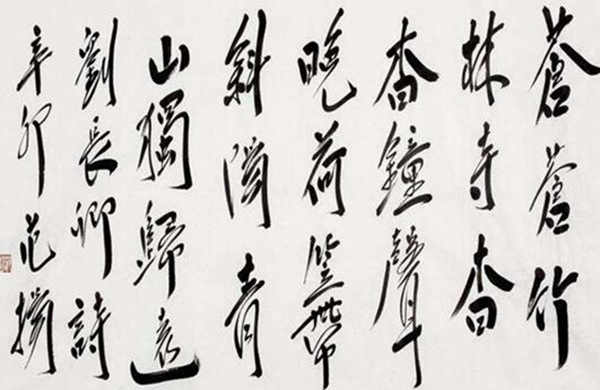 蒼蒼竹
林寺杳
杳鐘聲
晚荷笠帶
斜陽青
山獨歸遠
劉長卿詩
辛卯范揚